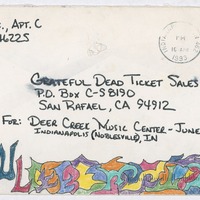 ., APT. C
46225
GRATEFUL DEAD TICKET SALES
P.O. BOX C-S8190
SAN RAFAEL, CA 94912
FOR: DEER CREEK MUSIC CENTER - JUNE
INDIANAPOLIS (NOBLESVILLE), IN
PM
1993